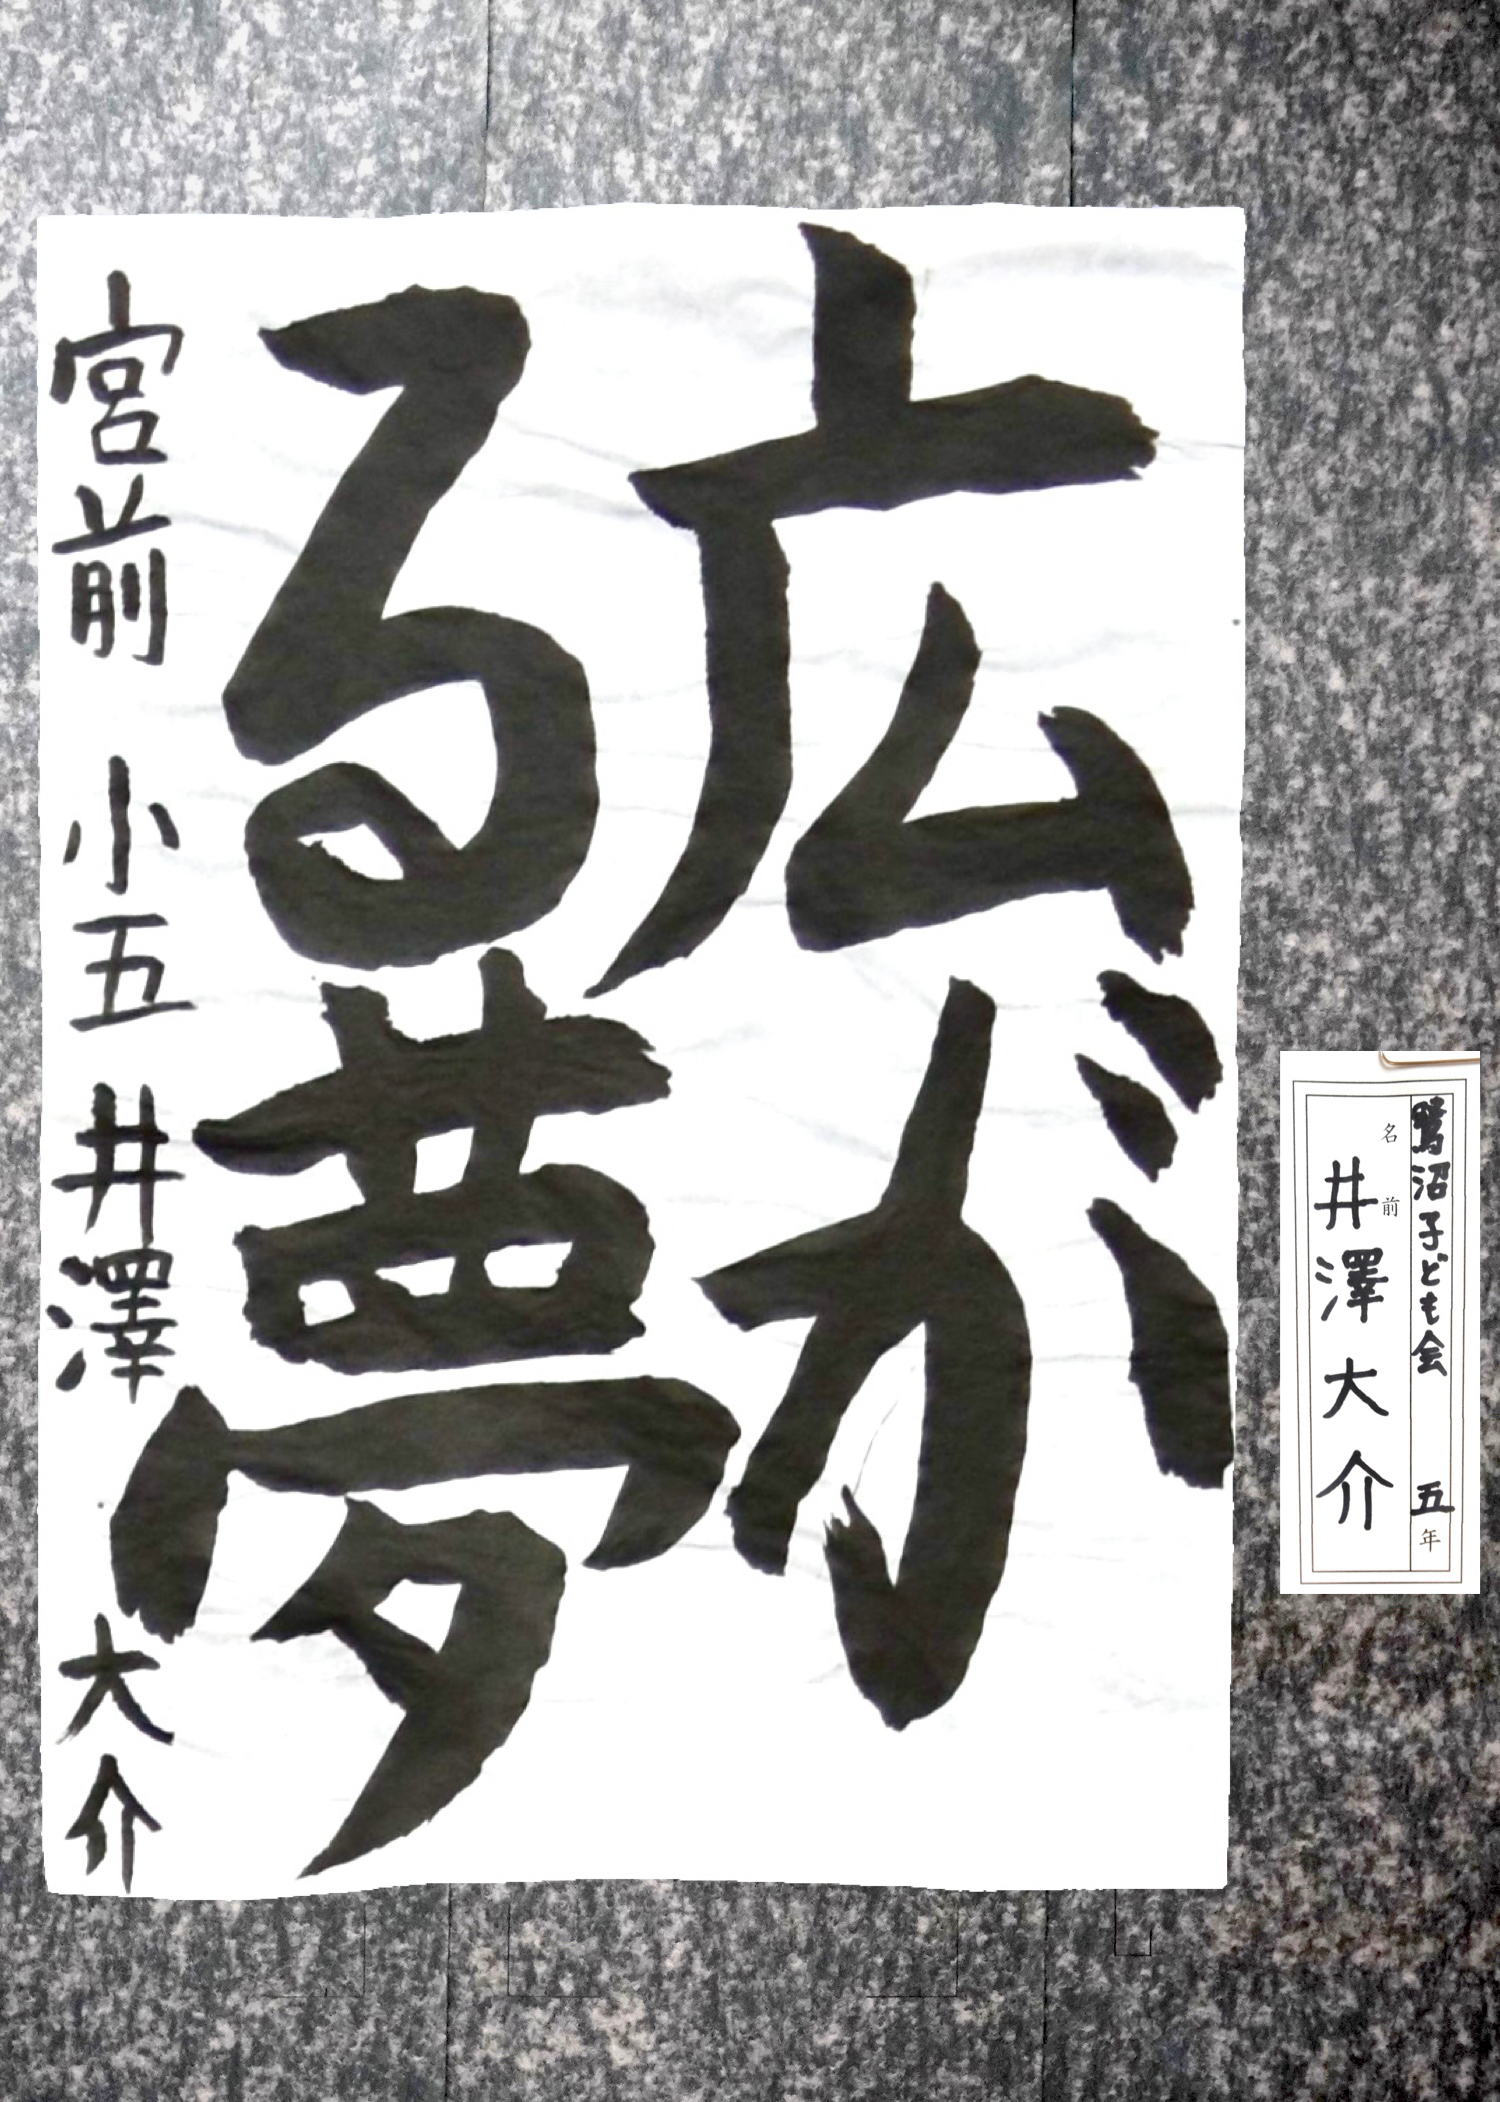 広が
る夢
宮前 小五 井澤 大介
鷺沼子ども会 五年
名前
井澤大介